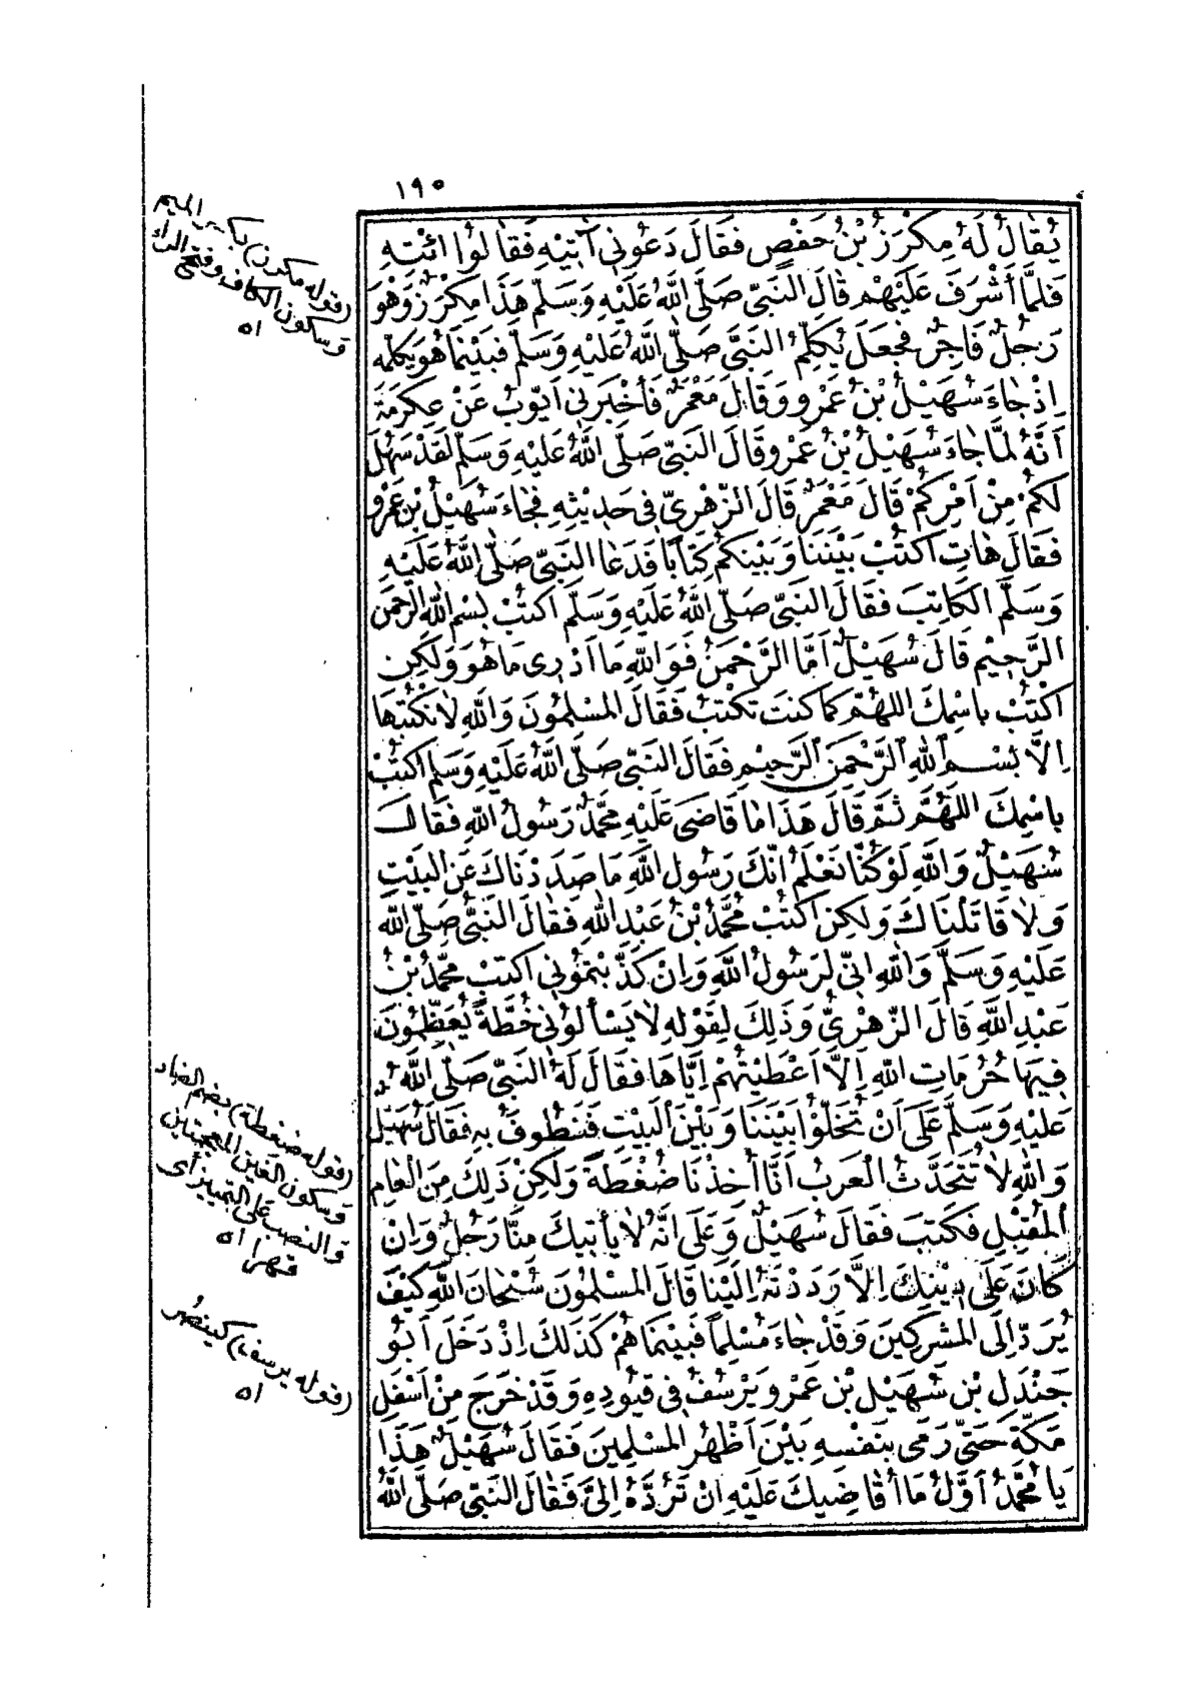 ١٩٥
يُقَالُ لَهُ مِكْرَزُ بْنُ حَفْصٍ فَقَالَ دَعُونِي آتِيْهِ فَقَالُوا ائْتِهِ
فَلَمَّا أَشْرَفَ عَلَيْهِمْ قَالَ النَّبِيّ صَلَّى اللَّهُ عَلَيْهِ وَسَلَّمَ هَذَا مِكْرَزٌ وَهْوَ
رَجُلٌ فَاجِرٌ فَجَعَلَ يُكَلِّمُ النَّبِيَّ صَلَّى اللَّهُ عَلَيْهِ وَسَلَّمَ فَبَيْنَمَا هُوَ يُكَلِّمُهُ
إِذْ جَاءَ سُهَيْلُ بْنُ عَمْرٍو وَقَالَ مَعْمَرٌ فَأَخْبَرَنِي أَيّوبُ عَنْ عِكْرِمَةَ
أَنَّهُ لَمَّا جَاءَ سُهَيْلُ بْنُ عَمْرٍو قَالَ النَّبِيّ صَلَّى اللَّهُ عَلَيْهِ وَسَلَّمَ لَقَدْ سَهُلَ
لَكُمْ مِنْ أَمْرِكُمْ قَالَ مَعْمَرٌ قَالَ الزّهْرِيّ فِي حَدِيْثِهِ فَجَاءَ سُهَيْلُ بْنُ عَمْرٍو
فَقَالَ هَاتِ اكْتُبْ بَيْنَنَا وَبَيْنَكُمْ كِتَابًا فَدَعَا النَّبِيّ صَلَّى اللَّهُ عَلَيْهِ
وَسَلَّمَ الْكَاتِبَ فَقَالَ النَّبِيّ صَلَّى اللَّهُ عَلَيْهِ وَسَلَّمَ اكْتُبْ بِسْمِ اللهِ الرَّحْمَنِ
الرَّحِيْمِ قَالَ سُهَيْلٌ أَمَّا الرَّحْمَنُ فَوَاللَّهِ مَا أَدْرِي مَا هُوَ وَلَكِن
اكْتُبْ بِاسْمِكَ اللهُمَّ كَمَا كُنْتَ تَكْتُبُ فَقَالَ الْمُسْلِمُونَ وَاللَّهِ لَا نَكْتُبُهَا
إِلَّا بِسْمِ اللهِ الرَّحْمَنِ الرَّحِيمِ فَقَالَ النَّبِيّ صَلَّى اللَّهُ عَلَيْهِ وَسَلَّمَ اكْتُبْ
بِاسْمِكَ اللَّهُمَّ ثُمَّ قَالَ هَذَا مَا قَاضَى عَلَيْهِ مُحَمَّدٌ رَسُولُ اللَّهِ فَقَالَ
سُهَيْلٌ وَاللَّهِ لَوْ كُنَّا نَعْلَمُ أَنَّكَ رَسُولُ اللَّهِ مَا صَدَدْنَاكَ عَنِ الْبَيْتِ
وَلَا قَاتَلْنَاكَ وَلَكِنِ اكْتُبْ مُحَمَّدُ بْنُ عَبْدِ اللَّهِ فَقَالَ النَّبِيُّ صَلَّى اللَّه
عَلَيْهِ وَسَلَّمَ وَاللَّهِ إِنِّي لَرَسُولُ اللَّهِ وَإِنْ كَذَّبْتُمُونِي اكْتُبْ مُحَمَّدُ بْنُ
عَبْدِ اللَّهِ قَالَ الزّهْرِيُّ وَذَلِكَ لِقَوْلِهِ لَا يَسْأَلُوْنِي خُطَّةً يُعَظِّمُونَ
فِيهَا حُرُمَاتِ اللَّهِ إِلَّا أَعْطَيْتُهُمْ إِيَّاهَا فَقَالَ لَهُ النَّبِيّ صَلَّى اللَّهُ
عَلَيْهِ وَسَلَّمَ عَلَى أَنْ تُخَلّوْا بَيْنَنَا وَبَيْنَ الْبَيْتِ فَنَطُوفُ بِهِ فَقَالَ سُهَيْلٌ
وَاللَّهِ لَا تَتَحَدَّثُ الْعَرَبُ أَنَّا أُخِذْنَا ضُغْطَةً وَلَكِنْ ذَلِكَ مِنَ الْعَامِ
الْمُقْبِلِ فَكَتَبَ فَقَالَ سُهَيْلٌ وَعَلَى أَنَّهُ لَا يَأْتِيكَ مِنَّا رَجُلٌ وَإِنْ
كَانَ عَلَى دِيْنِكَ إِلَّا رَدَدْتَهُ إِلَيْنَا قَالَ الْمُسْلِمُونَ سُبْحَانَ اللَّهِ كَيْفَ
يُرَدُّ إِلَى الْمُشْرِكِينَ وَقَدْ جَاءَ مُسْلِمًا فَبَيْنَمَا هُمْ كَذَلِكَ إِذْ دَخَلَ أَبُو
جَنْدَلِ بْنِ سُهَيْلِ بْنِ عَمْرٍو يَرْسُفُ فِي قُيُودِهِ وَقَدْ خَرَجَ مِنْ أَسْفَلِ
مَكَّةَ حَتَّى رَمَى بِنَفْسِهِ بَيْنَ أَظْهُرِ الْمُسْلِمِينَ فَقَالَ سُهَيْلٌ هَذَا
يَا مُحَمَّدُ أَوَّلُ مَا أُقَاضِيكَ عَلَيْهِ أَنْ تَرُدَّهُ إِلَيَّ فَقَالَ النَّبِيّ صَلَّى اللَّهُ
(قوله مكرز) بكسر الميم
وسكون الكاف وفتح الراء
اه
(قوله ضغطة) بضم الضاد
وسكون الغين المعجمتين
والنصب على التمييز أى
قهرا اه
(قوله يرسف) كينصُر
اه